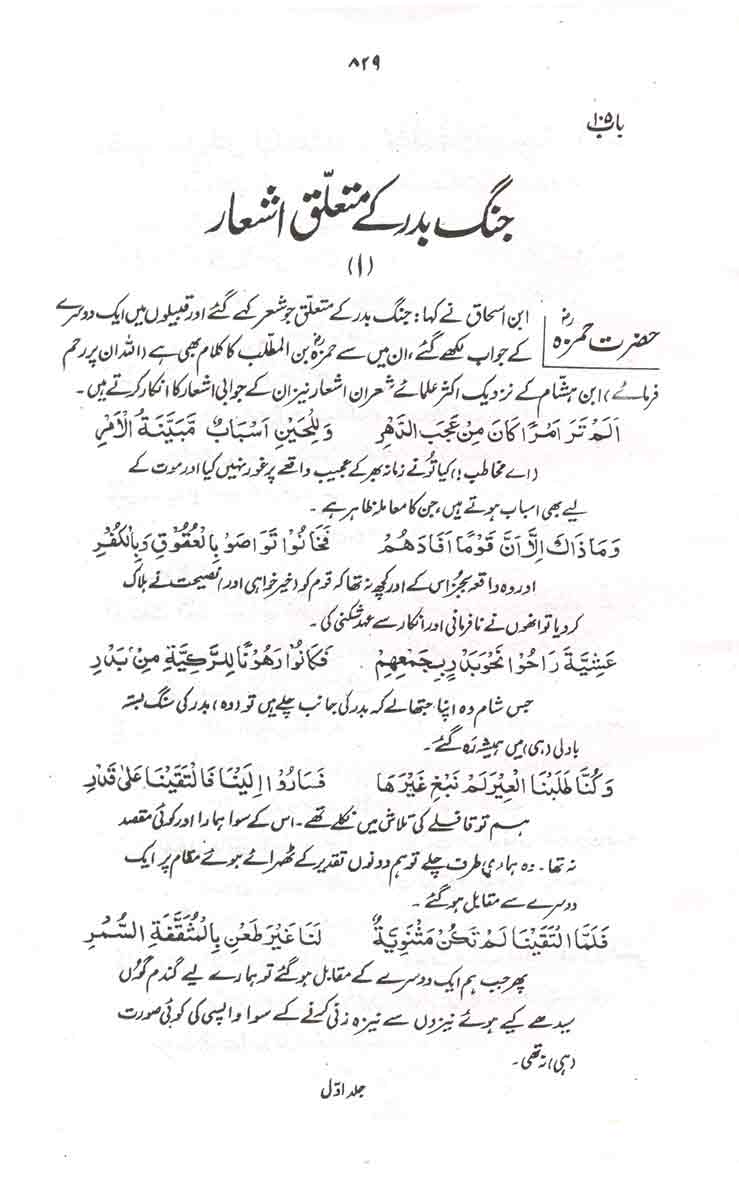 ۸۲۹
باب ۱۰۵
جنگ بدر کے متعلّق اشعار
(۱)
حضرت حمزہ رضؓ
ابن اسحاق نے کہا: جنگ بدر کے متعلّق جو شعر کہے گئے اور قبیلوں میں ایک دوسرے
کے جواب لکھے گئے، ان میں سے حمزہ رضؓ بن المطّلب کا کلام بھی ہے (اللہ ان پر رحم
فرمائے) ابن ہشام کے نزدیک اکثر علمائے شعر ان اشعار نیز ان کے جوابی اشعار کا انکار کرتے ہیں۔
اَلَمْ تَرَ اَمْرًا کَانَ مِنْ عَجَبِ الدَّهْرِ وَلِلْحَیْنِ اَسْبَابٌ مُبَیَّنَةُ الْاَمْرِ
(اے مخاطب!) کیا تُو نے زمانہ بھر کے عجیب واقعے پر غور نہیں کیا اور موت کے
لیے بھی اسباب ہوتے ہیں، جن کا معاملہ ظاہر ہے۔
وَمَا ذَاكَ اِلَّا اَنَّ قَوْمًا اَفَادَهُمْ فَخَانُوْا تَوَاصَوْا بِالْعُقُوْقِ وَبِالْکُفْرِ
اور وہ واقعہ بجز اس کے اور کچھ نہ تھا کہ قوم کو (خیر خواہی اور) نصیحت نے ہلاک
کر دیا تو انھوں نے نافرمانی اور انکار سے عہد شکنی کی۔
عَشِیَّةَ رَاحُوْا نَحْوَ بَدْرٍ بِجَمْعِهِمْ فَکَانُوْا رَهُوْنًا لِلرَّکِیَّةِ مِنْ بَدْرِ
جس شام وہ اپنا جتھا لے کہ بدر کی جانب چلے ہیں تو (وہ) بدر کی سنگ بستہ
باولی (ہی) میں ہمیشہ رہ گئے۔
وَکُنَّا طَلَبْنَا الْعِیْرَ لَمْ نَبْغِ غَیْرَهَا فَسَارُوْا اِلَیْنَا فَالْتَقَیْنَا عَلٰی قَدْرِ
ہم تو قافلے کی تلاش میں نکلے تھے۔ اس کے سوا ہمارا اور کوئی مقصد
نہ تھا۔ وہ ہماری طرف چلے تو ہم دونوں تقدیر کے ٹھہرائے ہوئے مقام پر ایک
دوسرے سے مقابل ہو گئے۔
فَلَمَّا الْتَقَیْنَا لَمْ تَکُنْ مَثْنَوِیَّةٌ لَنَا غَیْرَ طَعْنٍ بِالْمُثَقَّفَةِ السُّمْرِ
پھر جب ہم ایک دوسرے کے مقابل ہو گئے تو ہمارے لیے گندم گوں
سیدھے کیے ہوئے نیزوں سے نیزہ زنی کرنے کے سوا واپسی کی کوئی صورت
(ہی) نہ تھی۔
جلد اوّل